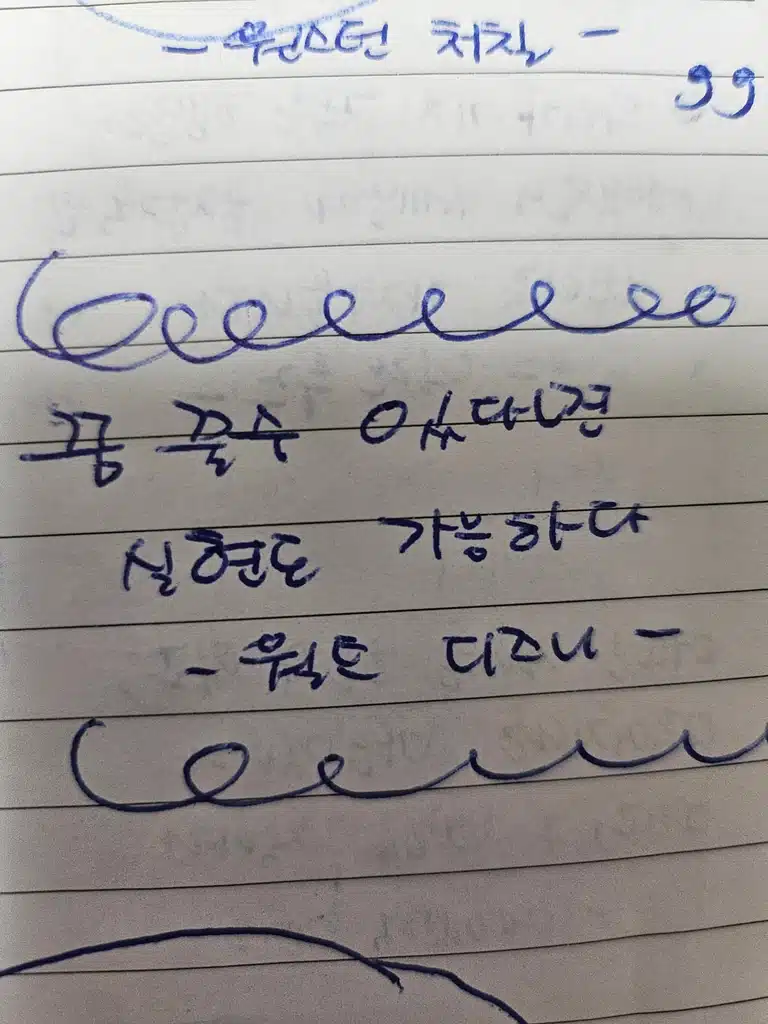 - 윈스턴 처칠 -
”
꿈 꿀수 있다면
실현도 가능하다
- 월트 디즈니 -